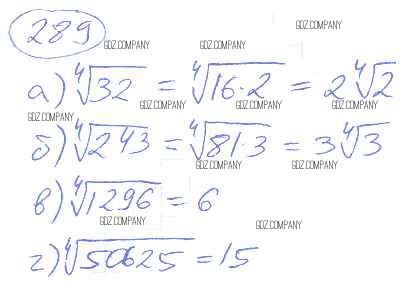 289
GDZ.COMPANY
GDZ.COMPANY GDZ.COMPANY
а) ∜32 = ∜16·2 = 2∜2
GDZ.COMPANY GDZ.COMPANY GDZ.COMPANY
GDZ.COMPANY
б) ∜243 = ∜81·3 = 3∜3
GDZ.COMPANY GDZ.COMPANY GDZ.COMPANY
в) ∜1296 = 6
GDZ.COMPANY GDZ.COMPANY
г) ∜50625 = 15